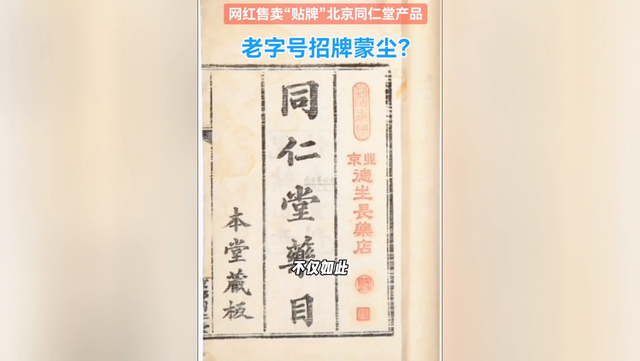 网红售卖“贴牌”北京同仁堂产品
老字号招牌蒙尘？
北京
德生長藥店
同仁堂藥目
本堂藏板
不仅如此